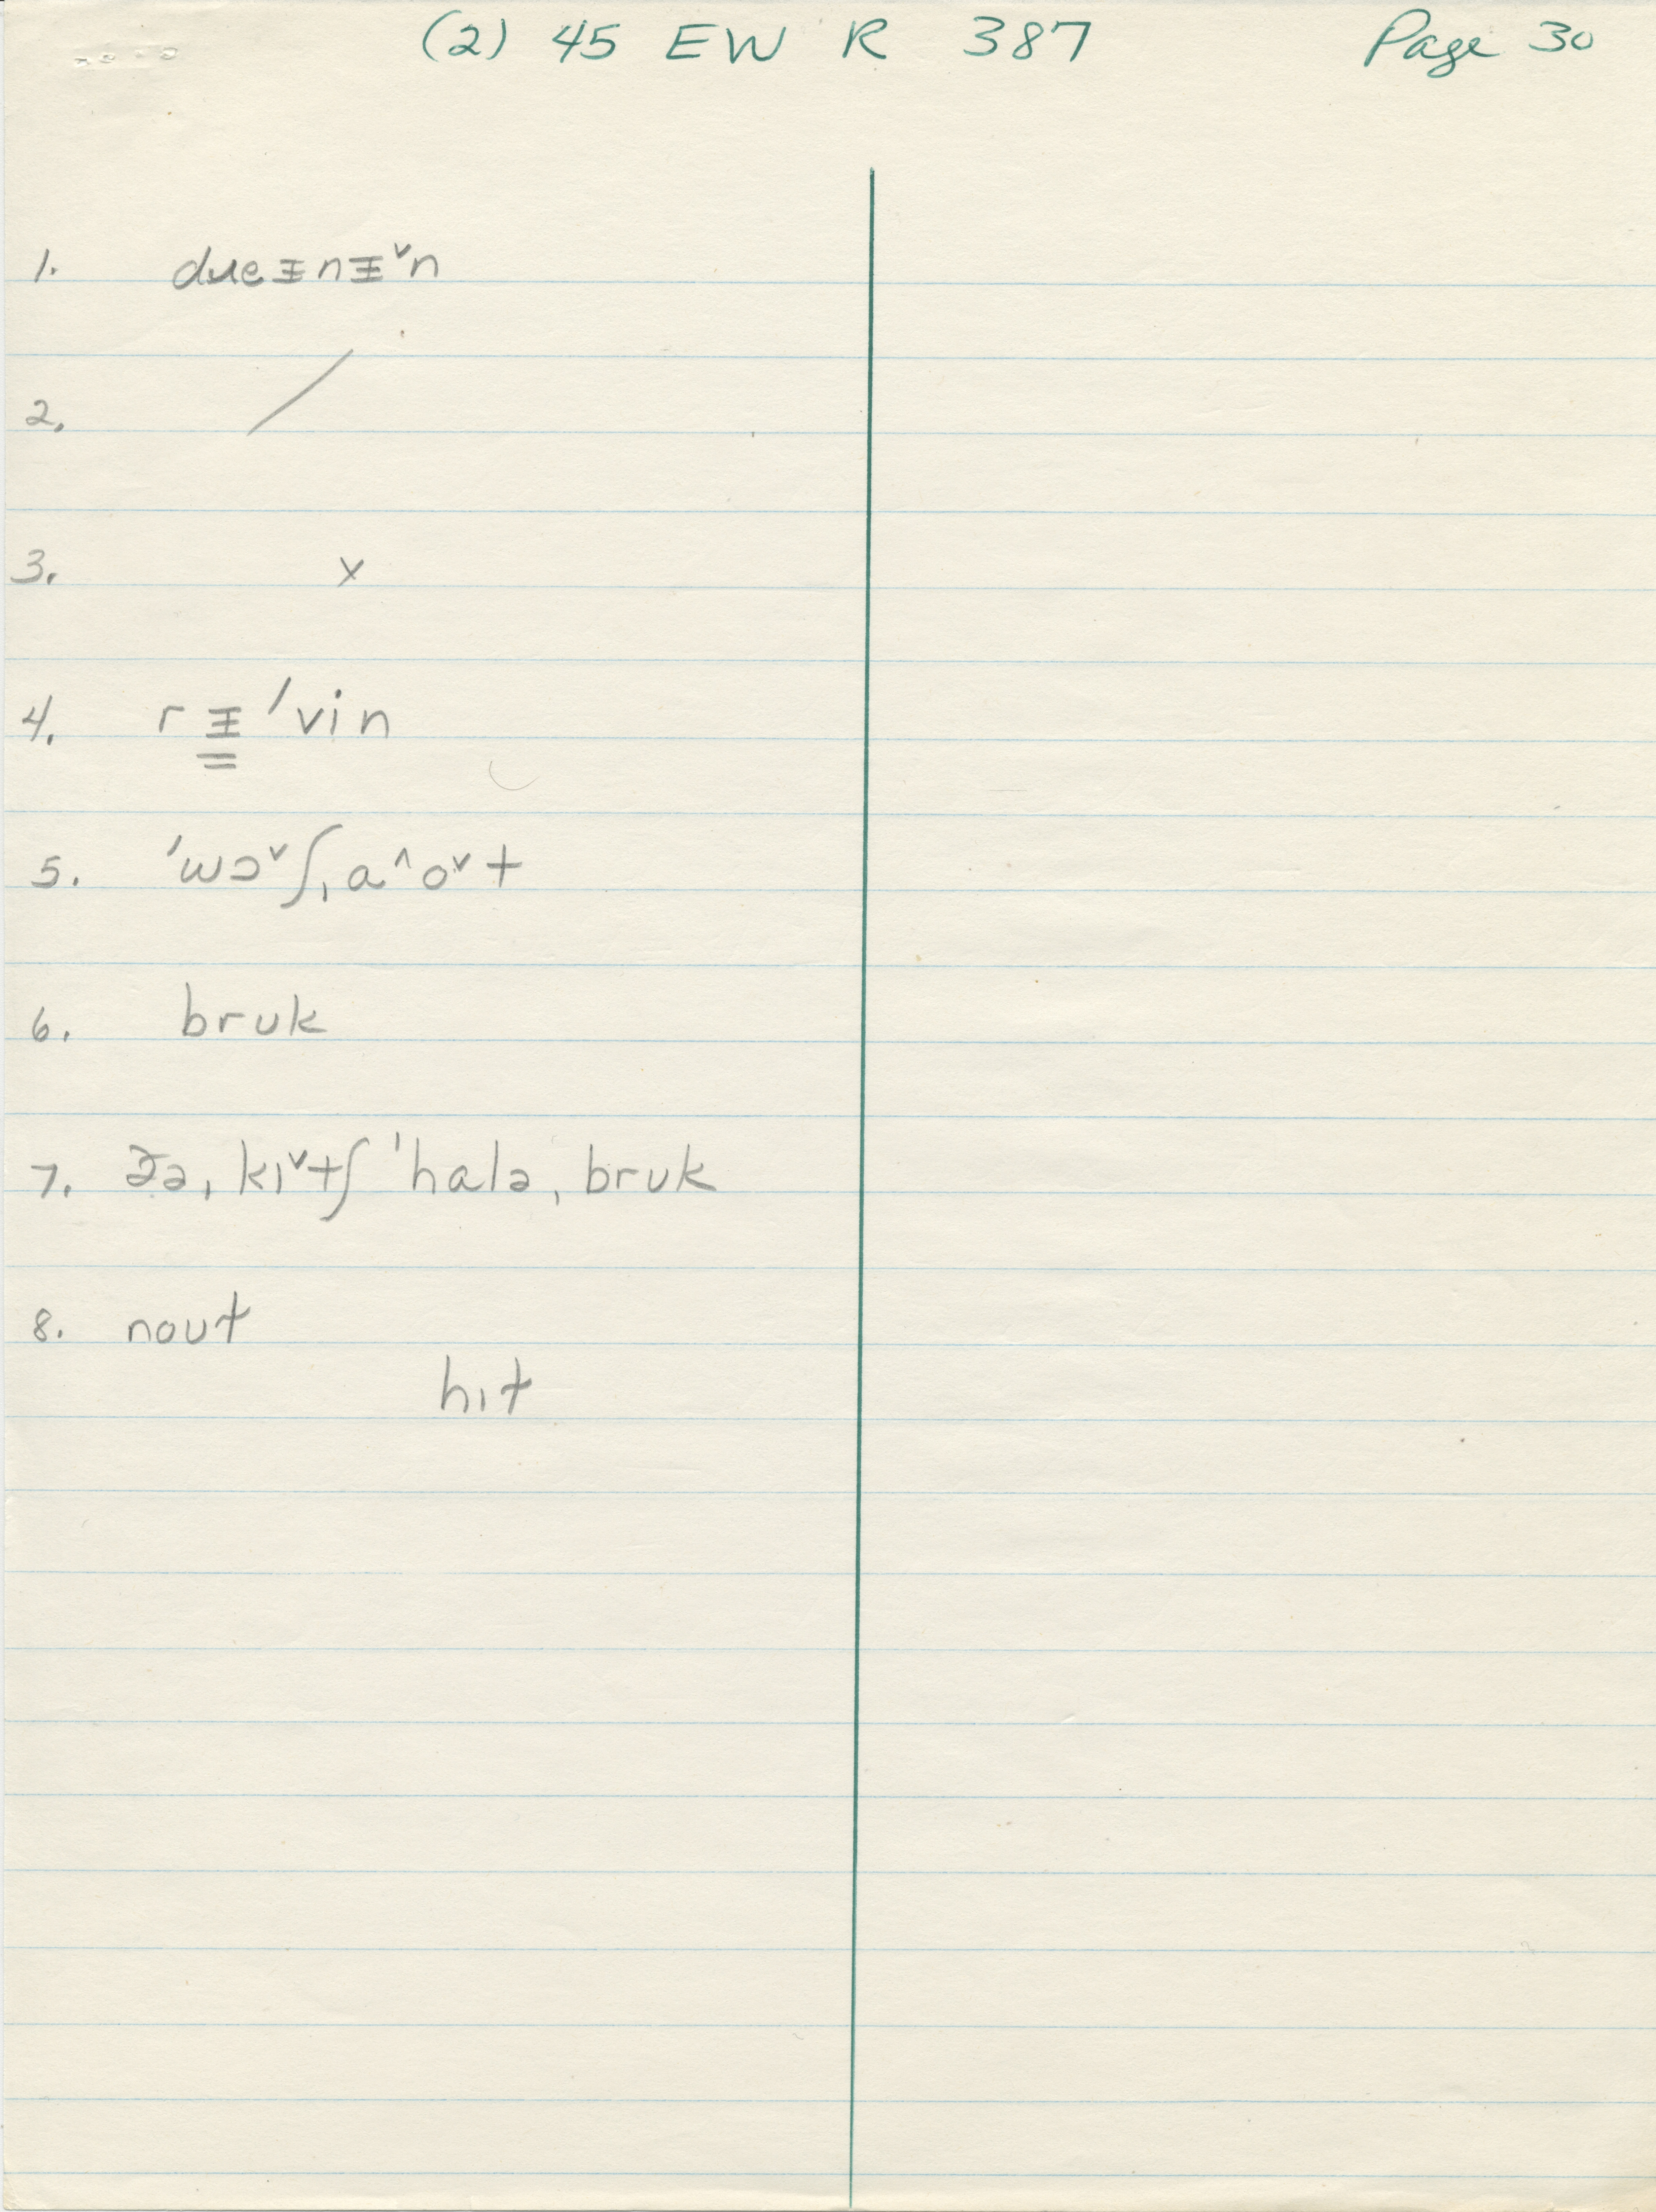 (2) 45 EW R 387 Page 30
1. dɹeᵻnᵻˇn
2. /
3. x
4. r ᵻ ˈvin
5. ˈwɔˇʃˌa^oˇt
6. bruk
7. ðəˌkɪˇtʃ ˈhaləˌbruk
8. nout
hɪt